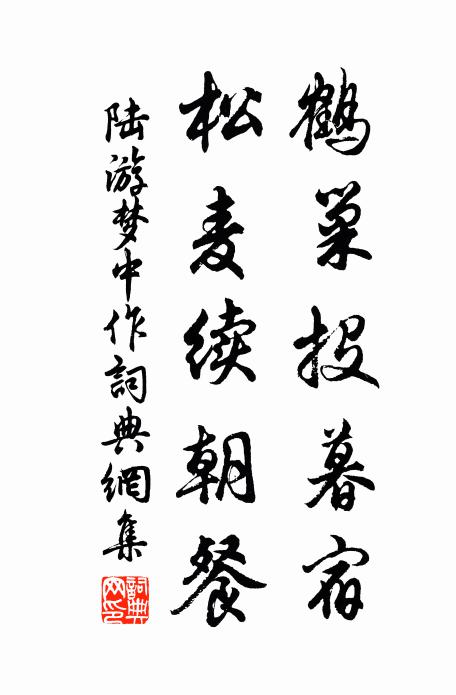 鹤巢投暮宿
松麦续朝餐
陆游梦中作詞典網集
詞典网印